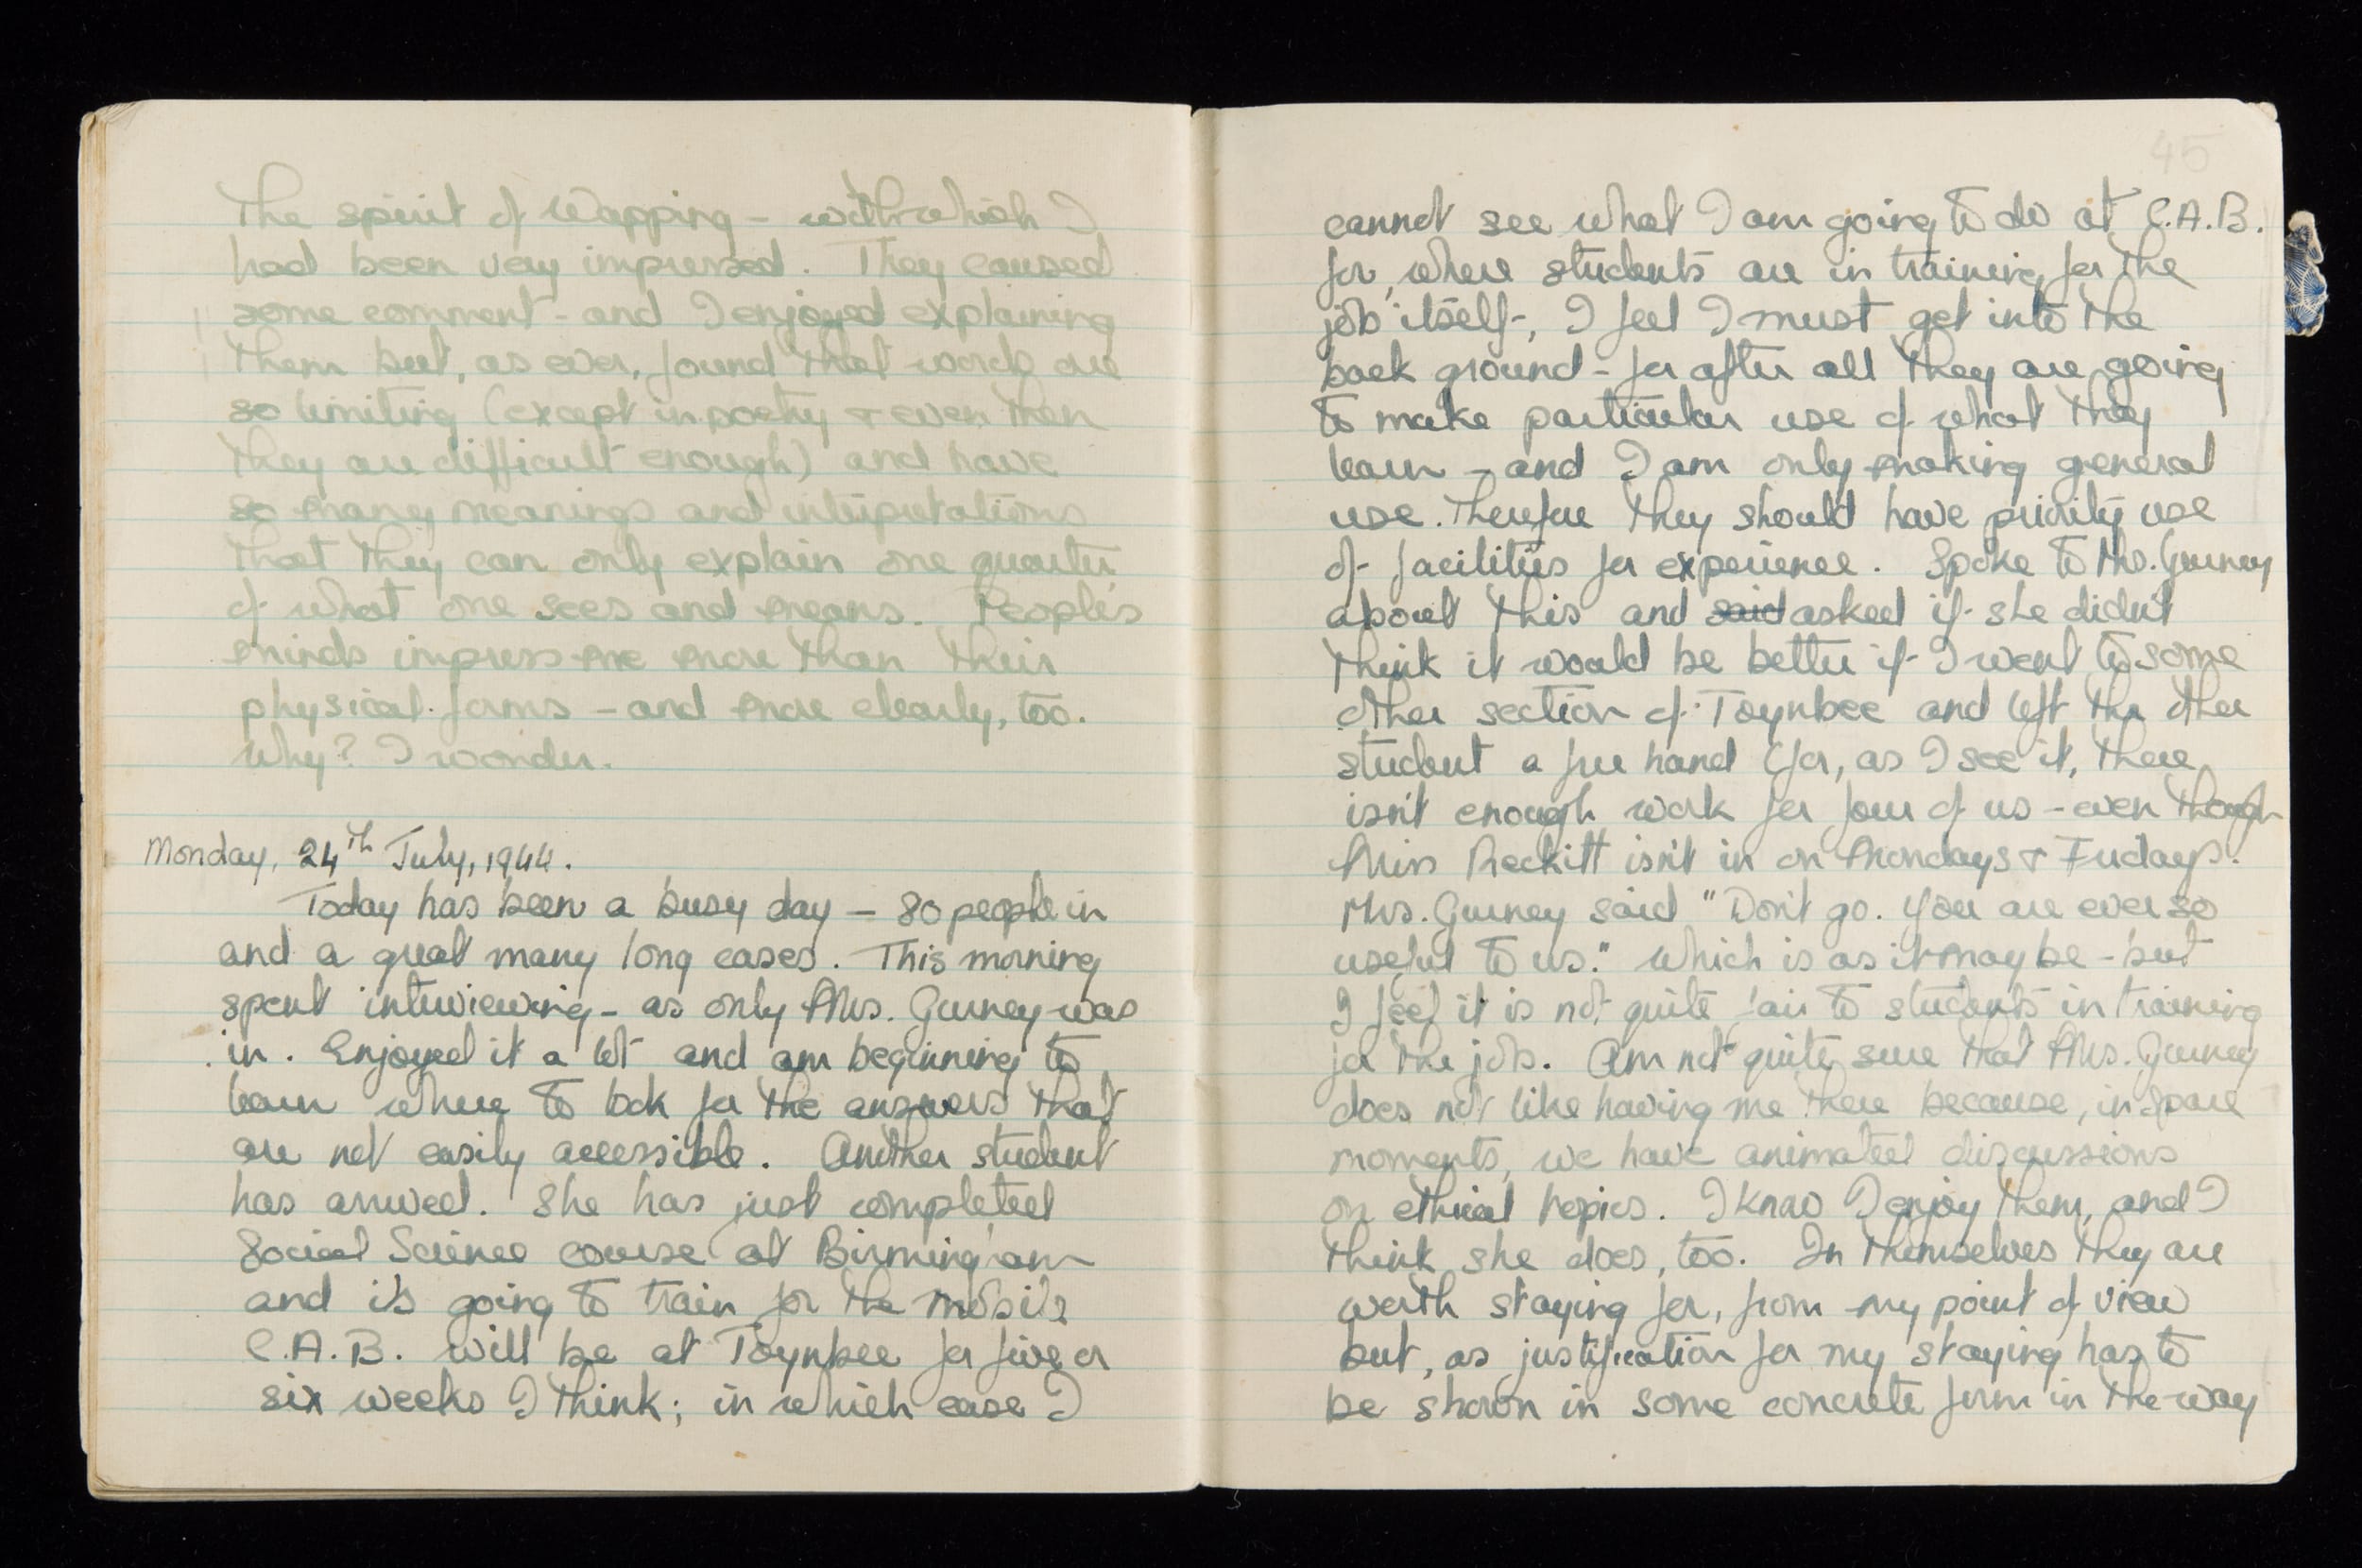 The spirit of Wapping - with which I
had been very impressed. They caused
some comment - and I enjoyed explaining
them but, as ever, found that words are
so limiting (except in poetry & even then
they are difficult enough) and have
so many meanings and interpretations
that they can only explain one quarter
of what one sees and means. People's
minds impress me more than their
physical forms - and more clearly, too.
Why? I wonder.
Monday, 24th July, 1944.
Today has been a busy day - 80 people in
and a great many long cases. This morning
spent interviewing - as only Mrs. Gurney was
in. Enjoyed it a lot and am beginning to
learn where to look for the answers that
are not easily accessible. Another student
has arrived. She has just completed
Social Science course at Birmingham
and is going to train for the mobile
C.A.B. Will be at Toynbee for five or
six weeks I think; in which case I
45
cannot see what I am going to do at C.A.B.
for, where students are in training for the
job itself, I feel I must get into the
back ground - for after all they are going
to make particular use of what they
learn - and I am only making general
use. Therefore they should have priority use
of facilities for experience. Spoke to Mrs. Gurney
about this and said asked if she didn't
think it would be better if I went to some
other section of Toynbee and left the other
student a free hand (for, as I see it, there
isn't enough work for four of us - even though
Miss Reckitt isn't in on Mondays & Fridays.
Mrs. Gurney said "Don't go. You are ever so
useful to us." Which is as it may be - but
I feel it is not quite fair to students in training
for the job. Am not quite sure that Mrs. Gurney
does not like having me there because, in spare
moments, we have animated discussions
on ethical topics. I know I enjoy them, and I
think she does, too. In themselves they are
worth staying for, from my point of view
but, as justification for my staying has to
be shown in some concrete form in the way